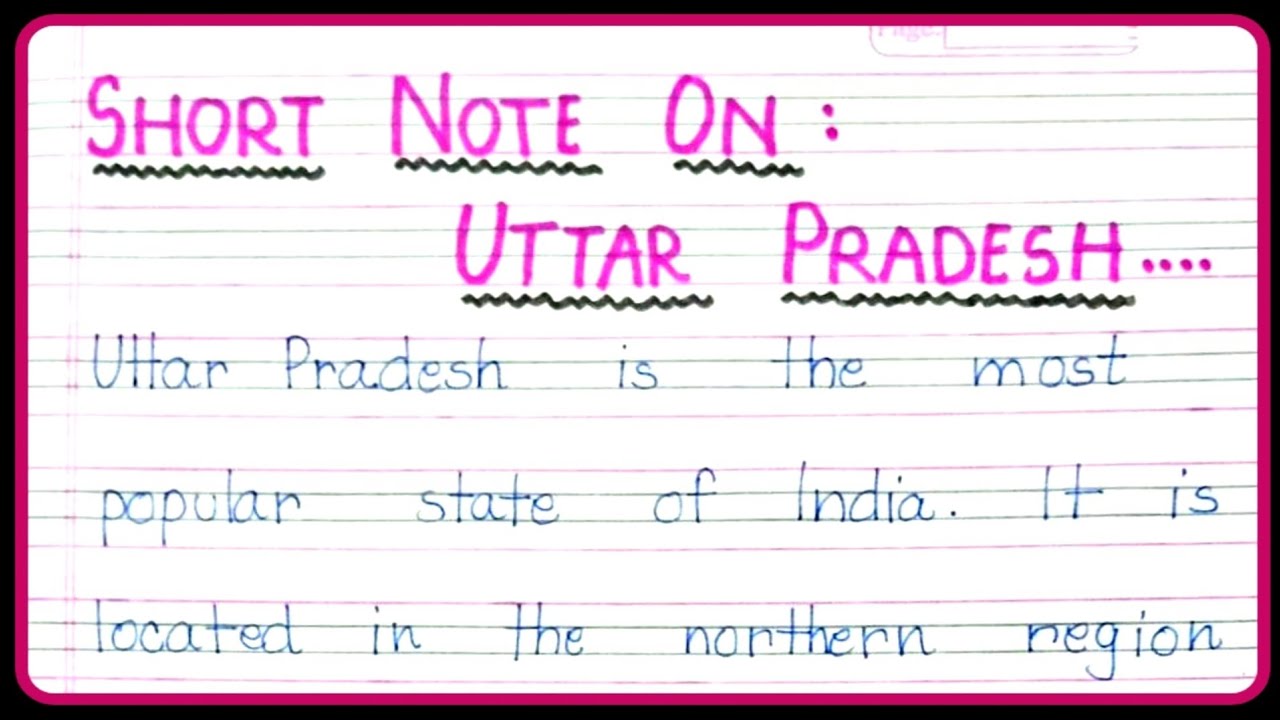 Page:
SHORT NOTE ON :
UTTAR PRADESH....
Uttar Pradesh is the most
popular state of India. It is
located in the northern region